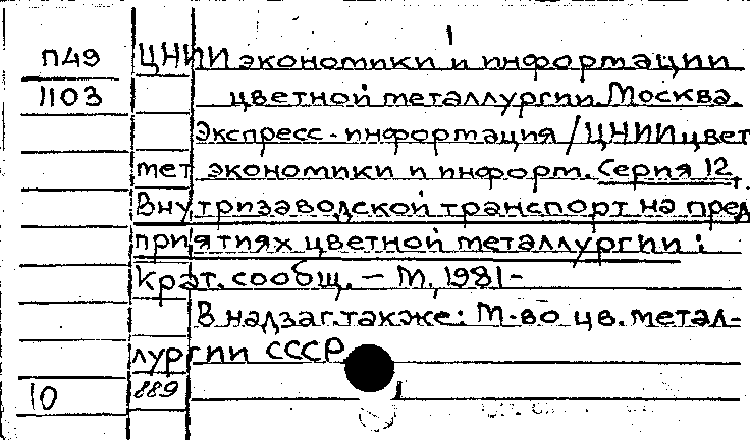 П49 ЦНИИ экономики и информации
1103 цветной металлургии. Москва.
Экспресс-информация / ЦНИИцвет
мет экономики и информ. Серия 12,
Внутризаводской транспорт на пред
приятиях цветной металлургии:
Крат. сообщ. – М, 1981 –
В надзаг. также: М-во цв. метал-
лургии СССР
10 889